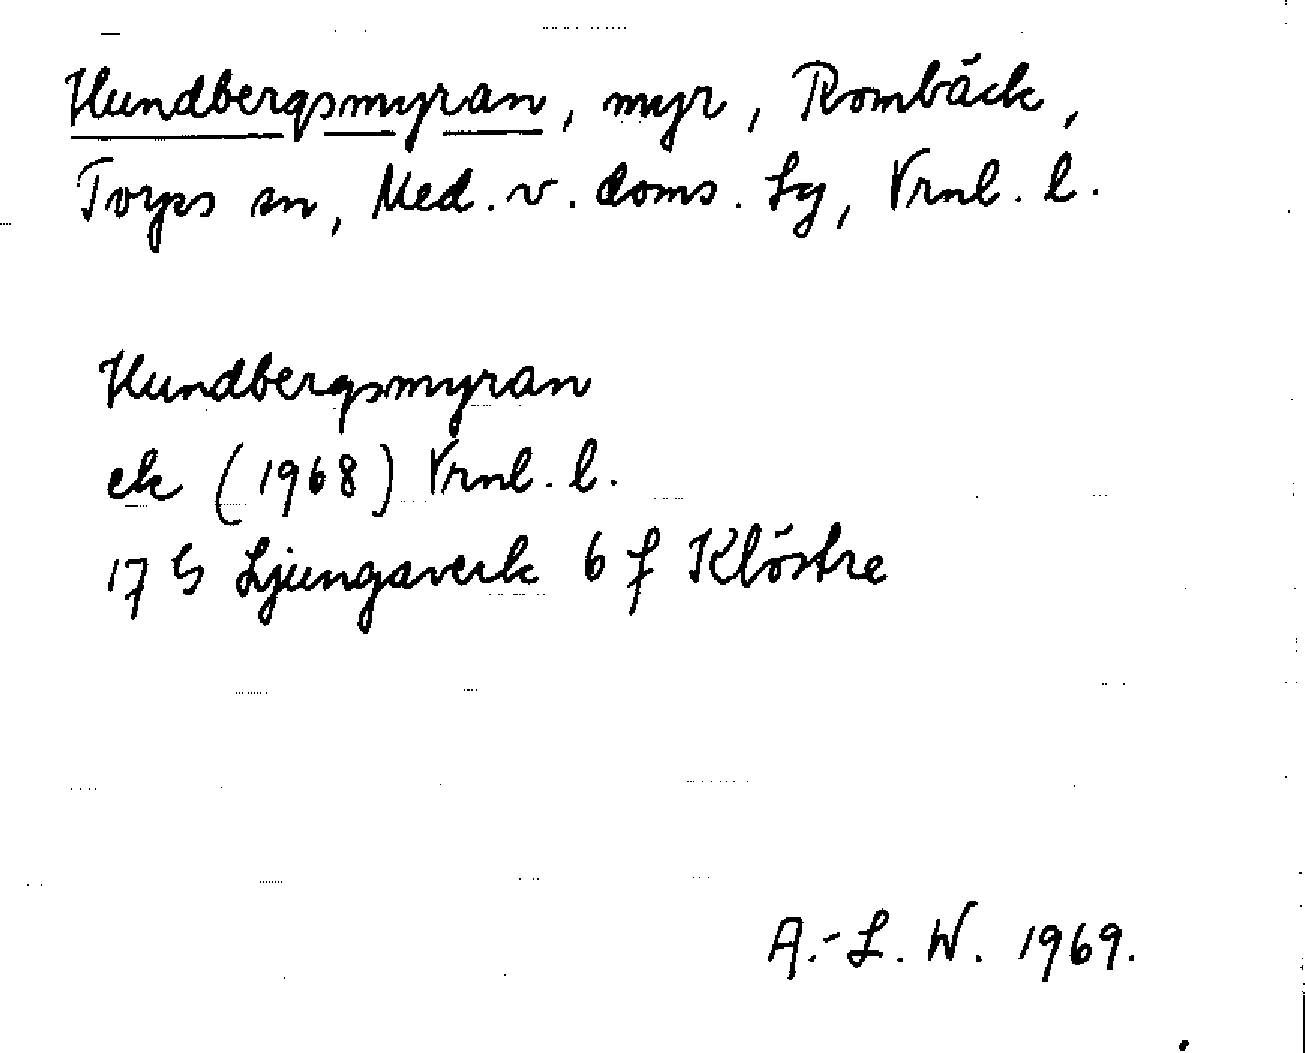 Hundbergsmyran, myr, Rombäck,
Torps sn, Med. v. doms. Lg, Vrnl. l.
Hundbergsmyran
ek (1968) Vrnl. l.
17 G Ljungaverk 6 f Klöstre
A.-L. W. 1969.